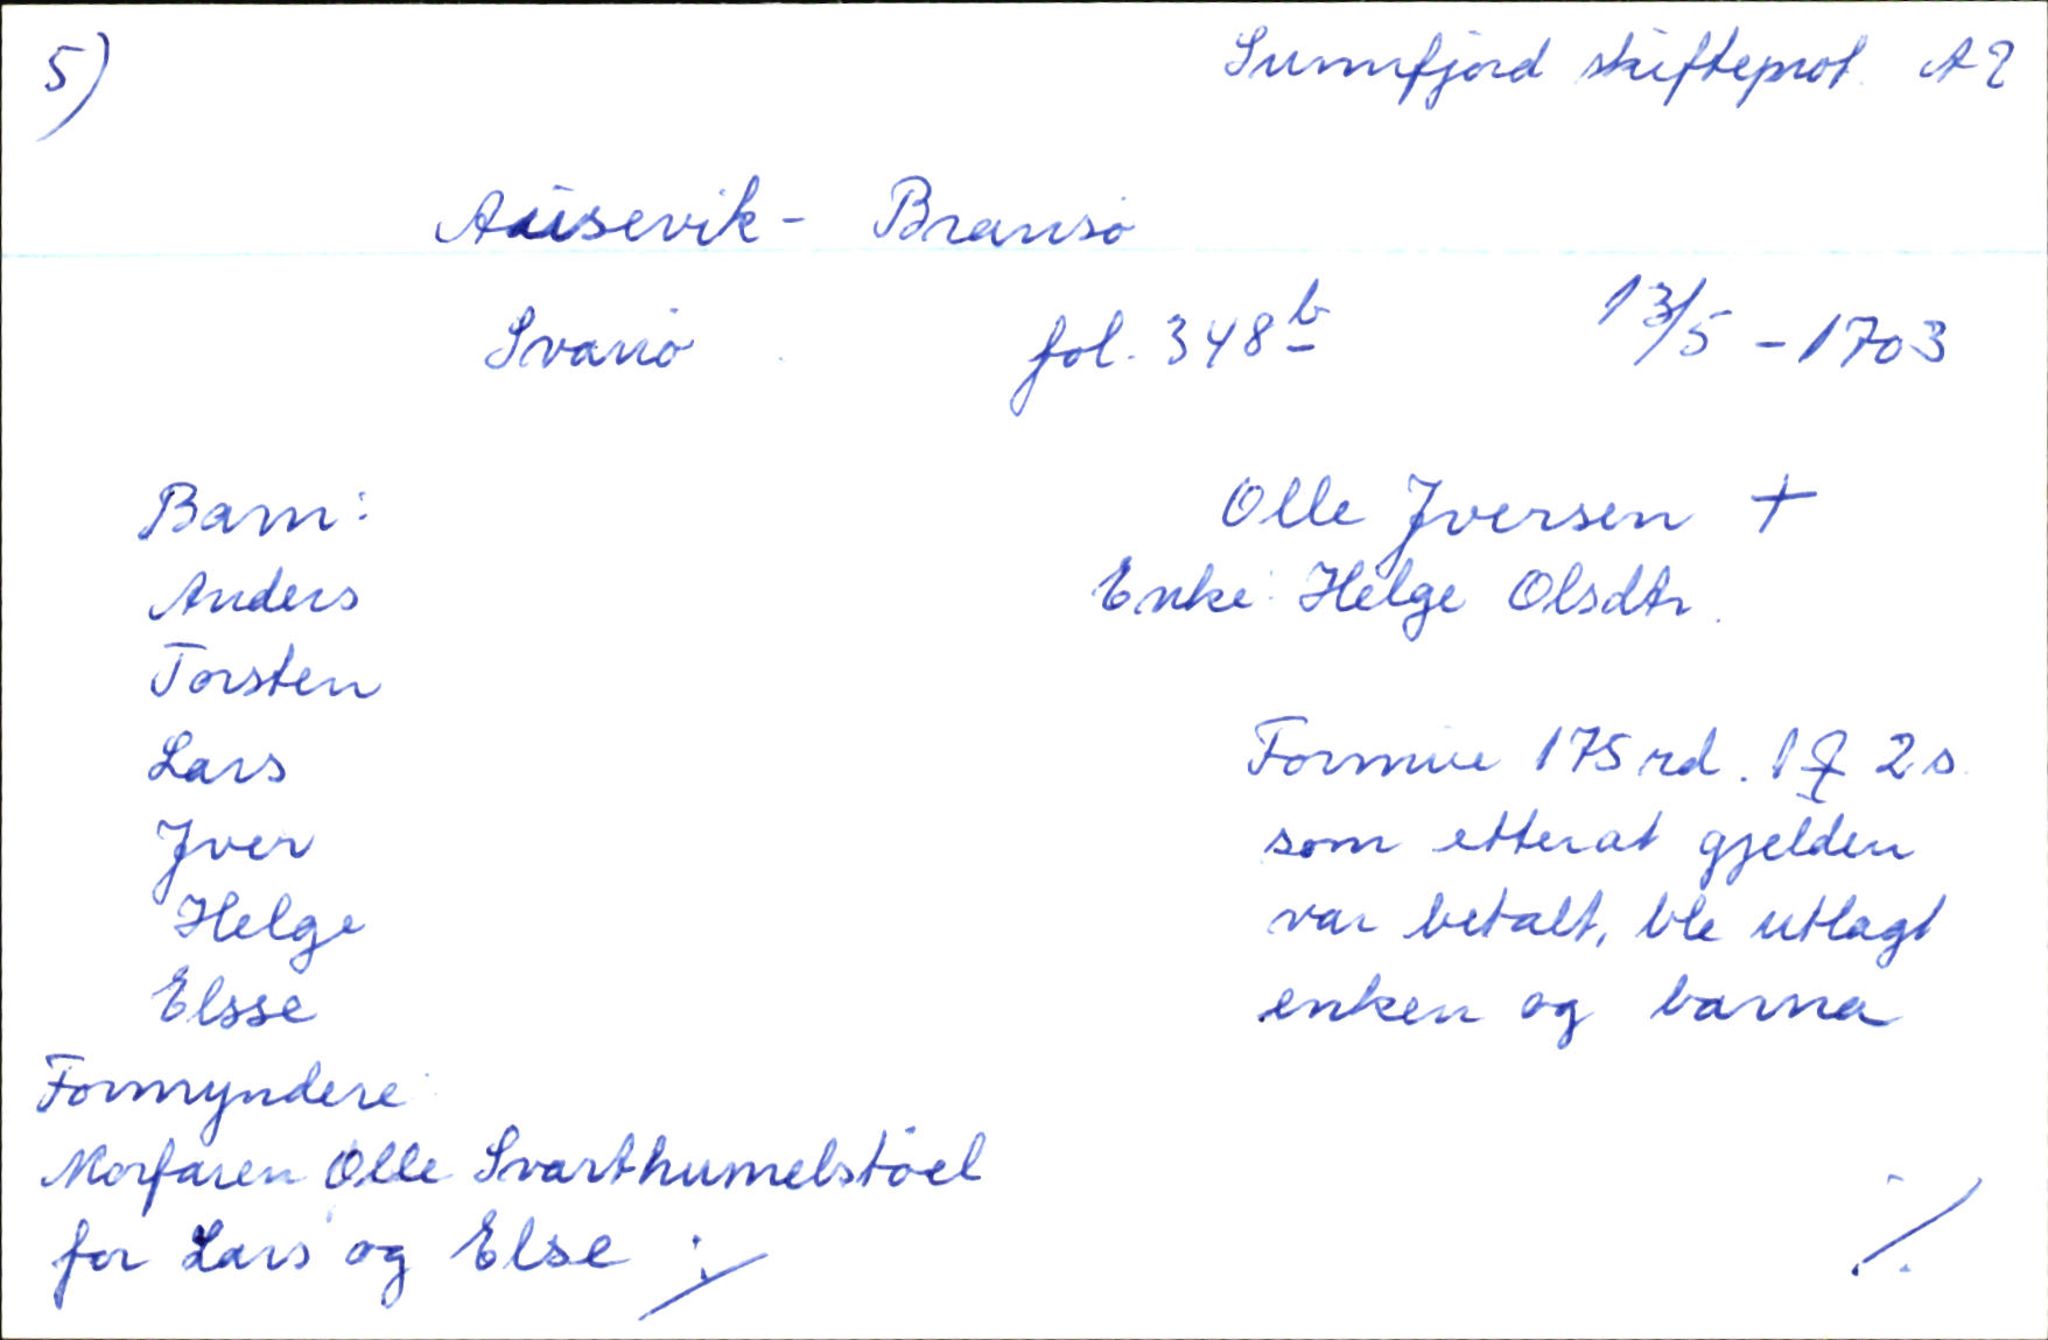 5) Sunnfjord skifteprot. A 2
Ausevik - Bransø
Svanø fol. 348b 13/5 - 1703
Barn: Olle Jversen +
Anders Enke: Helge Olsdtr.
Torsten
Lars Formue 175 rd. 1 2 s.
Jver som etterat gjelden
Helge var betalt, ble utlagt
Elsse enken og barna
Formyndere:
Morfaren Olle Svarthumelstöel
for Lars og Else ./. ./.